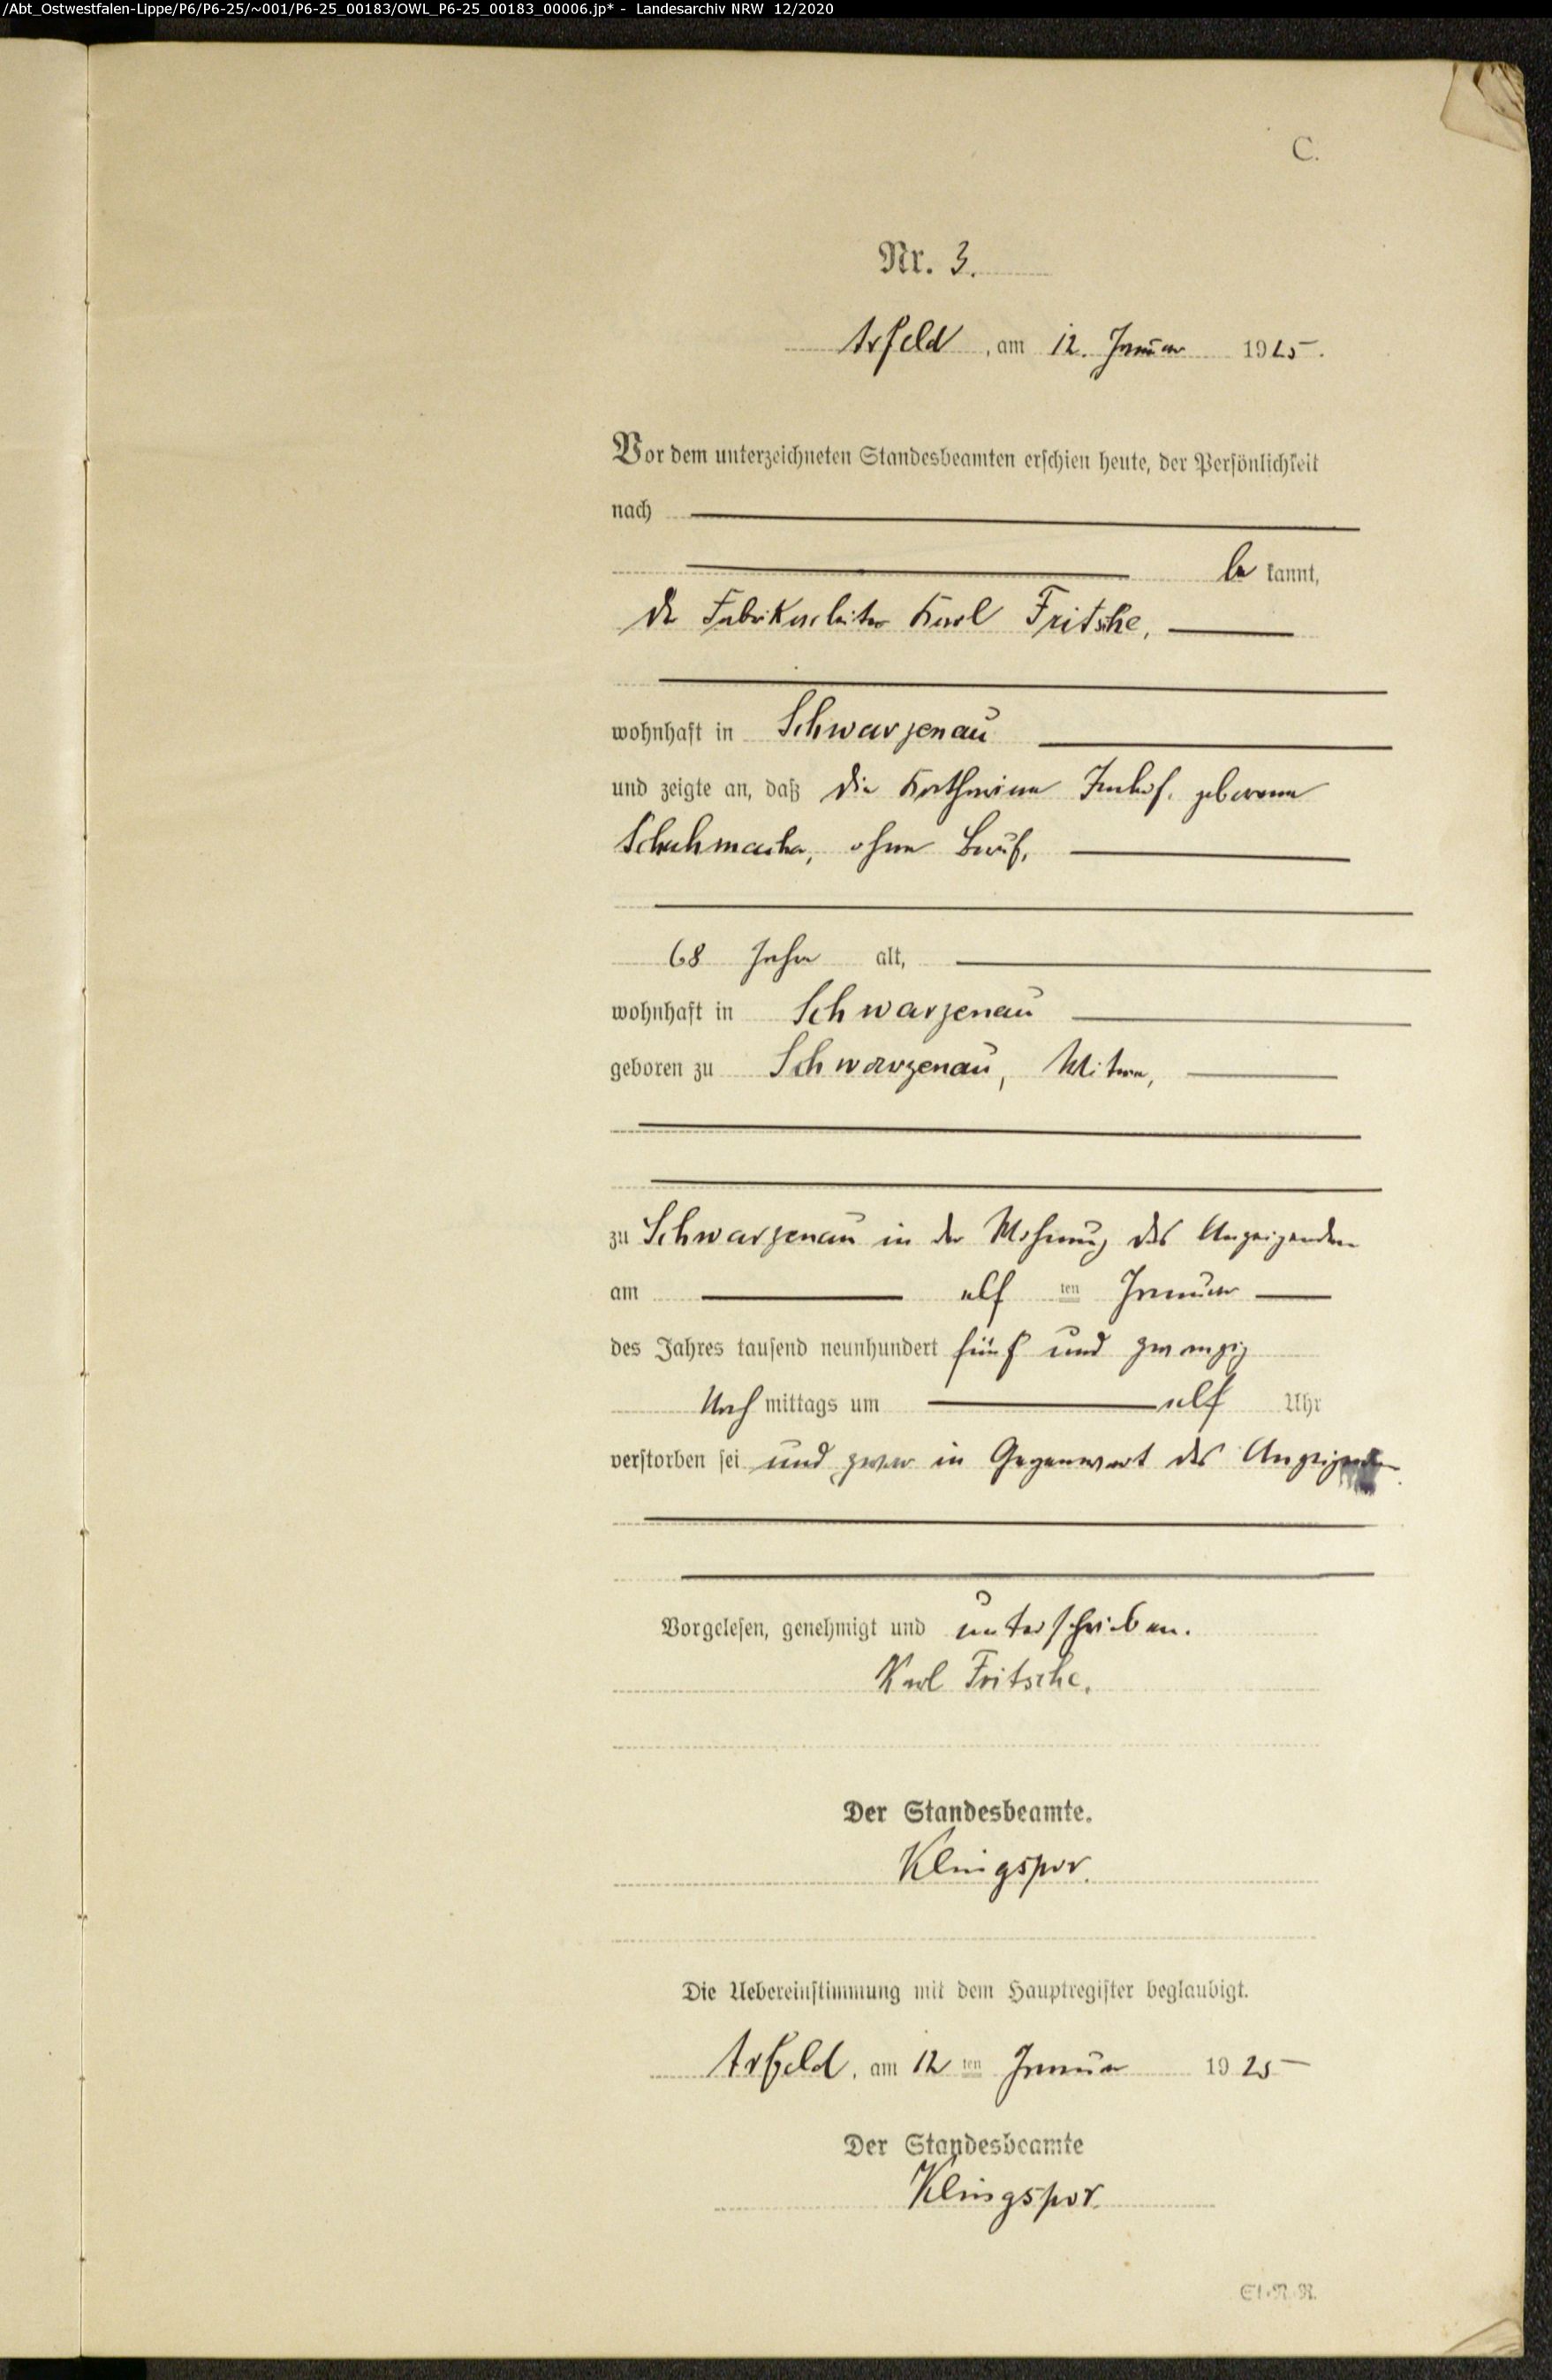 /Abt_Ostwestfalen-Lippe/P6/P6-25/~001/P6-25_00183/OWL_P6-25_00183_00006.jp* - Landesarchiv NRW 12/2020
C.
Nr. 3.
Arfeld, am 12. Januar 1925.
Vor dem unterzeichneten Standesbeamten erschien heute, der Persönlichkeit
nach
be kannt,
der Fabrikarbeiter Karl Fritsche,
wohnhaft in Schwarzenau
und zeigte an, daß die Katharina Imhof, geborene
Schuhmacher, ohne Beruf,
68 Jahre alt,
wohnhaft in Schwarzenau
geboren zu Schwarzenau, Witwe,
zu Schwarzenau in der Wohnung des Anzeigenden
am elf ten Januar
des Jahres tausend neunhundert fünf und zwanzig
Nach mittags um elf Uhr
verstorben sei und zwar in Gegenwart des Anzeigenden.
Vorgelesen, genehmigt und unterschrieben.
Karl Fritsche.
Der Standesbeamte.
Klingspor.
Die Uebereinstimmung mit dem Hauptregister beglaubigt.
Arfeld, am 12 ten Januar 1925
Der Standesbeamte
Klingspor.